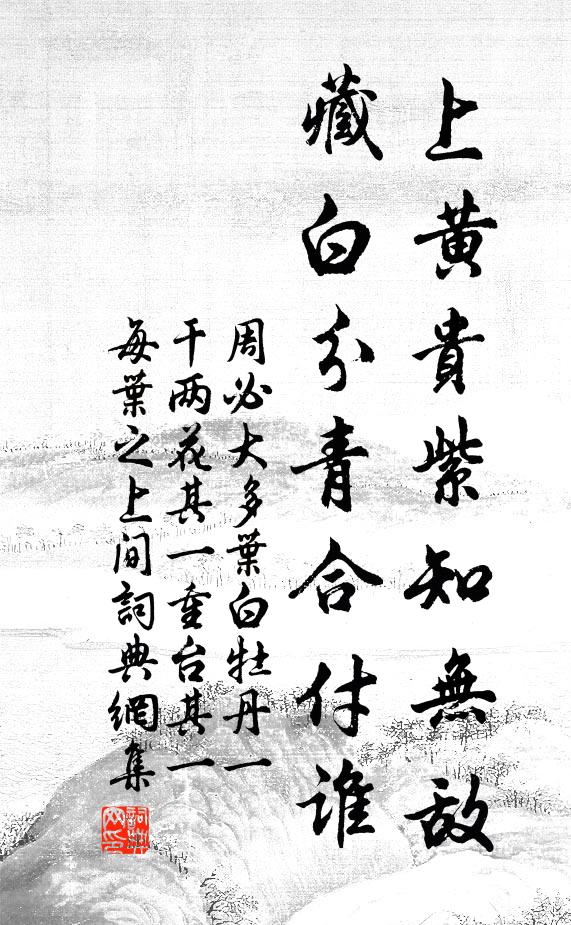 上黄貴紫知無敵
藏白分青合付誰
周必大多葉白牡丹一
干两花其一重台其一
每葉之上间詞典網集